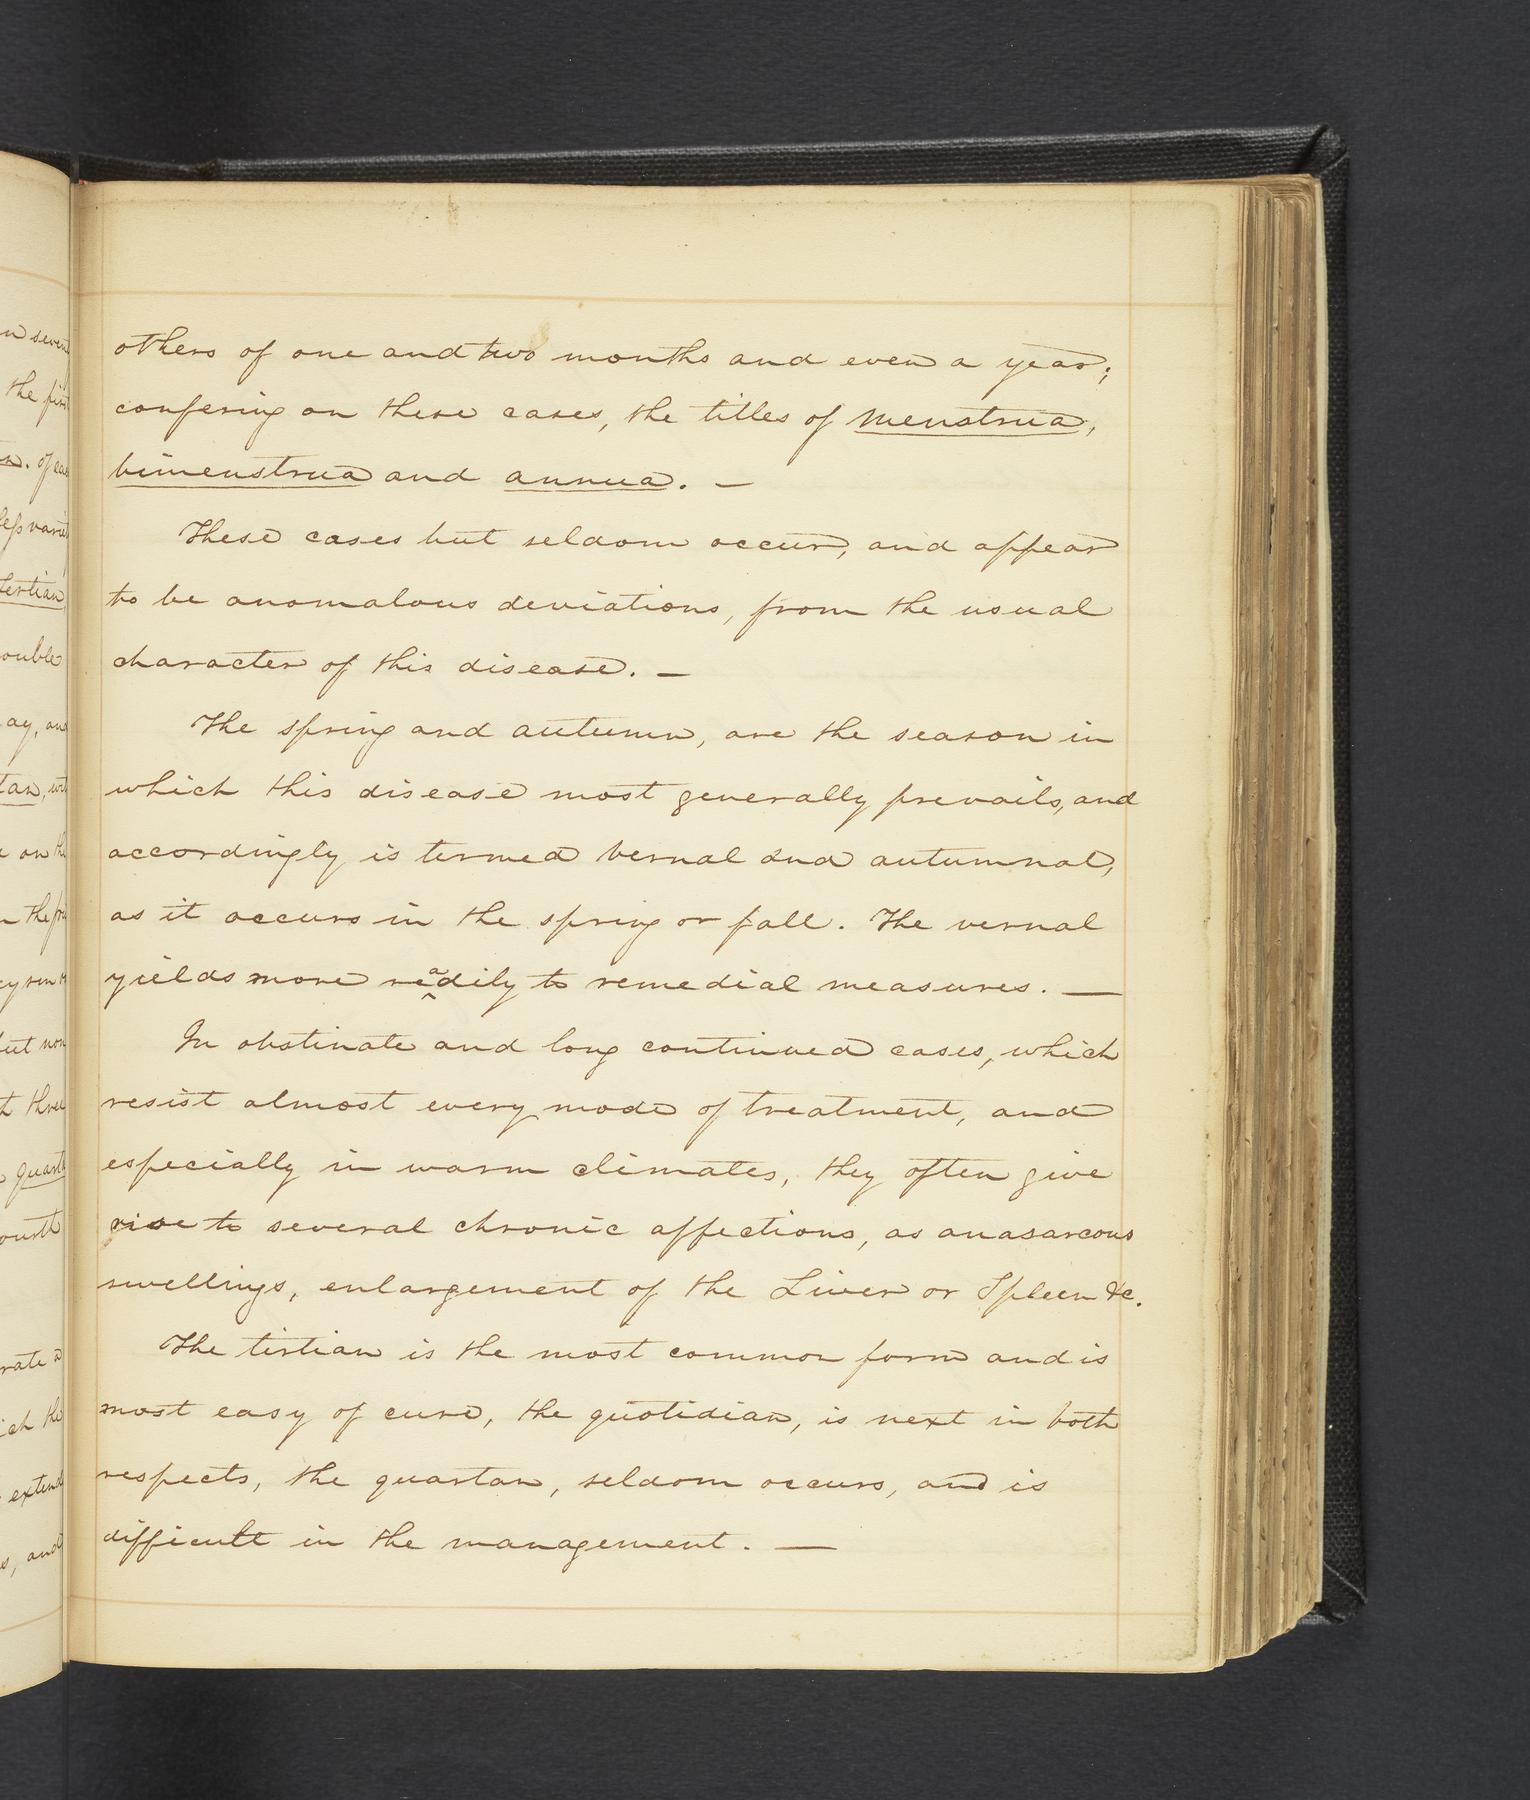 others of one and two months and even a year;
confering on these cases, the titles of menstrua,
bimenstrua and annua. —
These cases but seldom occur, and appear
to be anomalous deviations, from the usual
character of this disease. —
The spring and autumn, are the season in
which this disease most generally prevails, and
accordingly is termed vernal and autumnal,
as it occurs in the spring or fall. The vernal
yields more readily to remedial measures. —
In obstinate and long continued cases, which
resist almost every mode of treatment, and
especially in warm climates, they often give
rise to several chronic affections, as anasarcous
swellings, enlargement of the Liver or Spleen &c.
The tertian is the most common form and is
most easy of cure, the quotidian, is next in both
respects, the quartan, seldom occurs, and is
difficult in the management. —